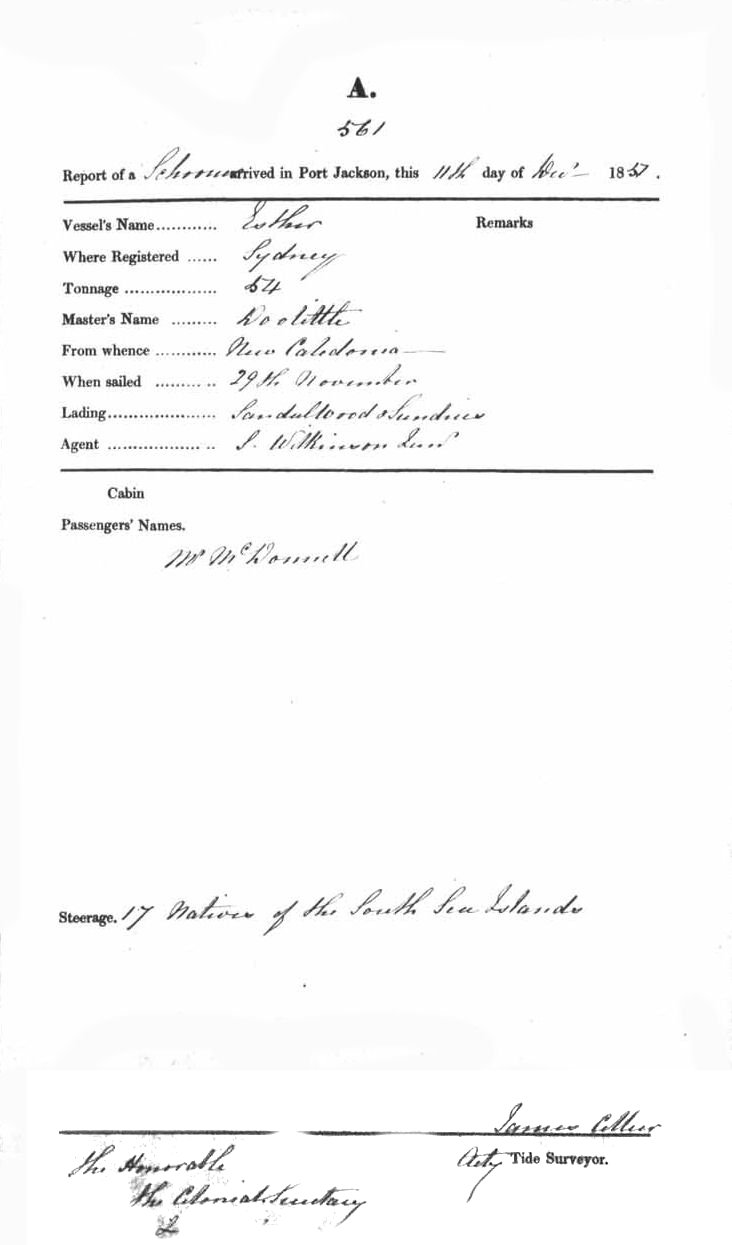 A.
561
Report of a Schooner arrived in Port Jackson, this 11th day of Decr 1857.
Vessel's Name............ Esther Remarks
Where Registered ...... Sydney
Tonnage .................. 54
Master's Name ......... Doolittle
From whence ............ New Caledonia
When sailed ............ 29th November
Lading..................... Sandal Wood & Sundries
Agent ..................... Wilkinson
Cabin
Passengers' Names.
Mr McDonnell
Steerage. 17 Natives of the South Sea Islands
James
Actg Tide Surveyor.
The Honorable
the Colonial Secretary